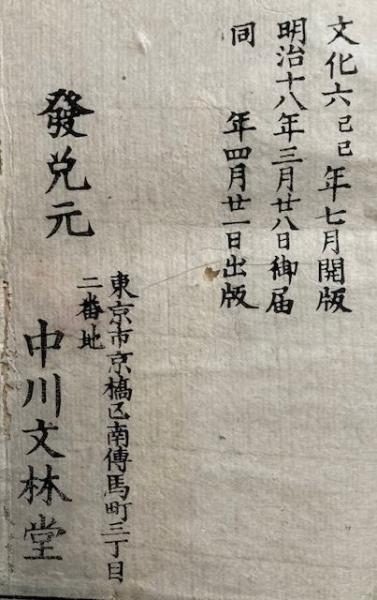 文化六己巳年七月開版
明治十八年三月廿八日御届
同　年四月廿一日出版
發兌元
東京市京橋区南傳馬町三丁目
二番地
中川文林堂